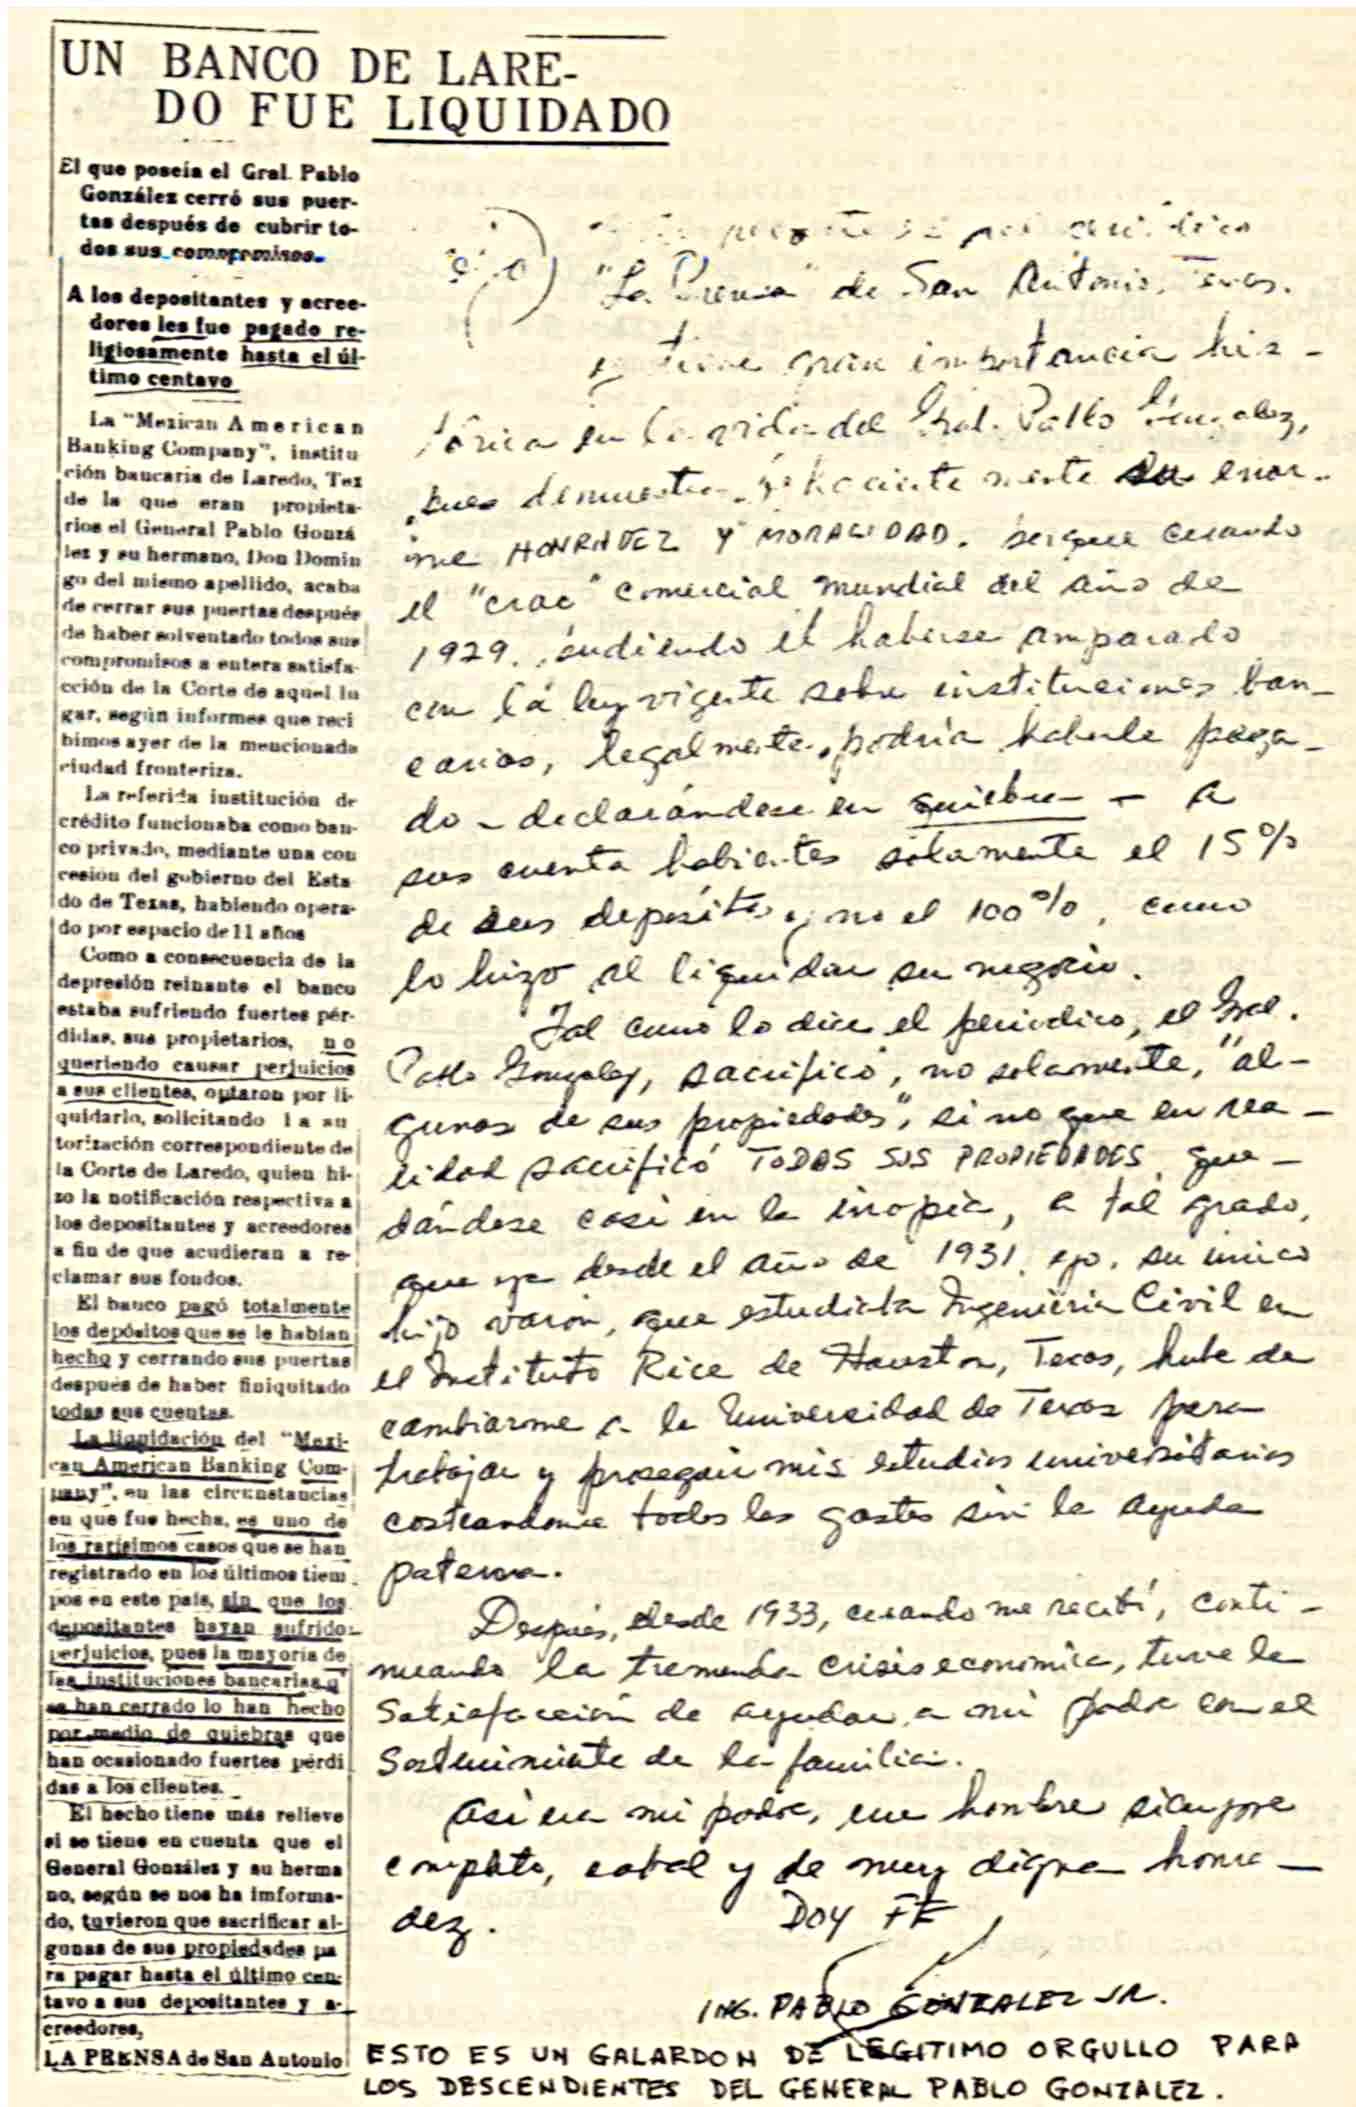 UN BANCO DE LARE-
DO FUE LIQUIDADO
El que poseía el Gral. Pablo
González cerró sus puer-
tas después de cubrir to-
dos sus compromisos.
A los depositantes y acree-
dores les fue pagado re-
ligiosamente hasta el úl-
timo centavo
La "Mexican American
Banking Company", institu
ción bancaria de Laredo, Tex
de la que eran propieta-
rios el General Pablo Gonzá
lez y su hermano, Don Domin
go del mismo apellido, acaba
de cerrar sus puertas después
de haber solventado todos sus
compromisos a entera satisfa-
cción de la Corte de aquel lu
gar, según informes que reci
bimos ayer de la mencionada
ciudad fronteriza.
La referida institución de
crédito funcionaba como ban-
co privado, mediante una con
cesión del gobierno del Esta
do de Texas, habiendo opera-
do por espacio de 11 años
Como a consecuencia de la
depresión reinante el banco
estaba sufriendo fuertes pér-
didas, sus propietarios, no
queriendo causar perjuicios
a sus clientes, optaron por li-
quidarlo, solicitando la au
torización correspondiente de
la Corte de Laredo, quien hi-
zo la notificación respectiva a
los depositantes y acreedores
a fin de que acudieran a re-
clamar sus fondos.
El banco pagó totalmente
los depósitos que se le habían
hecho y cerrando sus puertas
después de haber finiquitado
todas sus cuentas.
La liquidación del "Mexi-
can American Banking Com-
pany", en las circunstancias
en que fue hecha, es uno de
los rarísimos casos que se han
registrado en los últimos tiem
pos en este país, sin que los
depositantes hayan sufrido
perjuicios, pues la mayoría de
las instituciones bancarias q'
se han cerrado lo han hecho
por medio de quiebras que
han ocasionado fuertes pérdi
das a los clientes.
El hecho tiene más relieve
si se tiene en cuenta que el
General González y su herma
no, según se nos ha imforma-
do, tuvieron que sacrificar al-
gunas de sus propiedades pa
ra pagar hasta el último cen-
tavo a sus depositantes y a-
creedores,
LA PRENSA de San Antonio
"La Prensa" de San Antonio, Texas.
tiene gran importancia his-
tórica en la vida del Gral. Pablo González,
pues demuestra fehacientemente su enor-
me HONRADEZ Y MORALIDAD. porque cuando
el "crac" comercial mundial del año de
1929, pudiendo él haberse amparado
con la ley vigente sobre instituciones ban-
carias, legalmente, podría haberle paga-
do - declarándose en quiebra - a
sus cuenta habientes solamente el 15%
de sus depósitos y no el 100%, como
lo hizo al liquidar su negocio.
Tal como lo dice el periódico, el Gral.
Pablo González, sacrificó, no solamente, "al-
gunas de sus propiedades", si no que en rea-
lidad sacrificó TODAS SUS PROPIEDADES, que-
dándose casi en la inopia, a tal grado,
que ya desde el año de 1931, yo, su único
hijo varón, que estudiaba Ingeniería Civil en
el Instituto Rice de Houston, Texas, hube de
cambiarme a la Universidad de Texas para
trabajar y proseguir mis estudios universitarios
costeandome todos los gastos sin la ayuda
paterna.
Después, desde 1933, cuando me recibí, conti-
nuando la tremenda crisis económica, tuve la
satisfacción de ayudar a mi padre con el
sostenimiento de la familia.
Así era mi padre, un hombre siempre
completo, cabal y de muy digna honra-
dez. DOY FE
ING. PABLO GONZALEZ JR.
ESTO ES UN GALARDON DE LEGITIMO ORGULLO PARA
LOS DESCENDIENTES DEL GENERAL PABLO GONZALEZ.